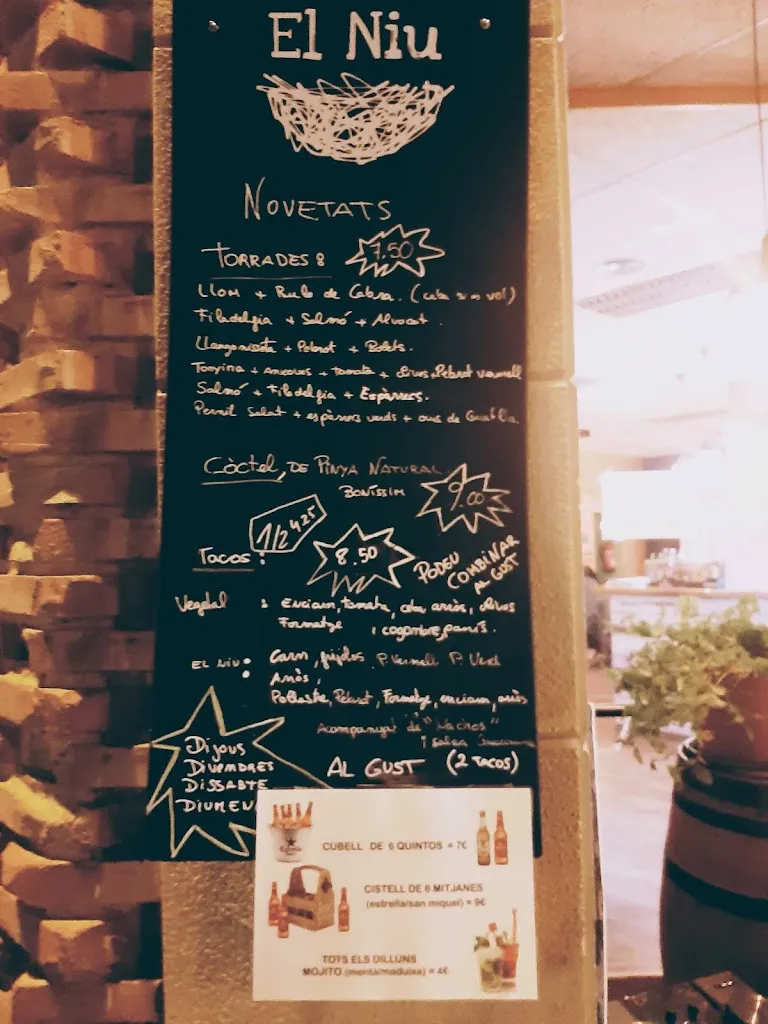 El Niu
NOVETATS
TORRADES: 7.50
LLOM + Rulo de Cabra. (ceba si es vol)
Filadelfia + Salmó + Alvocat.
Llangonisseta + Pebrot + Bolets.
Tonyina + Anxoves + tomata + olives + Pebrot vermell
Salmó + Filadelfia + Espàrrecs.
Pernil Salat + espàrrecs verds + ous de Guatlla
Còctel, DE PINYA NATURAL
BONÍSSIM 9.00
1/2 4.25
TACOS: 8.50 PODEU COMBINAR AL GUST
Vegetal : Enciam, tomata, ceba, arròs, olives
Formatge i cogombre, panís.
EL NIU: Carn, frijoles P. Vermell P. Verd
Arròs,
Pollastre, Pebrot, Formatge, enciam, arròs
Acompanyat de "Nachos"
i salsa
AL GUST (2 TACOS)
Dijous
DIVENDRES
DISSABTE
CUBELL DE 6 QUINTOS = 7€
CISTELL DE 6 MITJANES
(estrella/san miquel) = 9€
TOTS ELS DILLUNS
MOJITO (menta/maduixa) = 4€